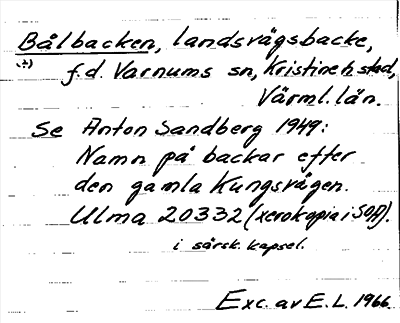 Bålbacken, landsvägsbacke,
f.d. Varnums sn, Kristineh. stad,
Värml. län.
Se Anton Sandberg 1949:
Namn på backar efter
den gamla Kungsvägen.
Ulma 20332 (xerokopia i SOA).
i särsk. kapsel.
Exc. av E.L. 1966.